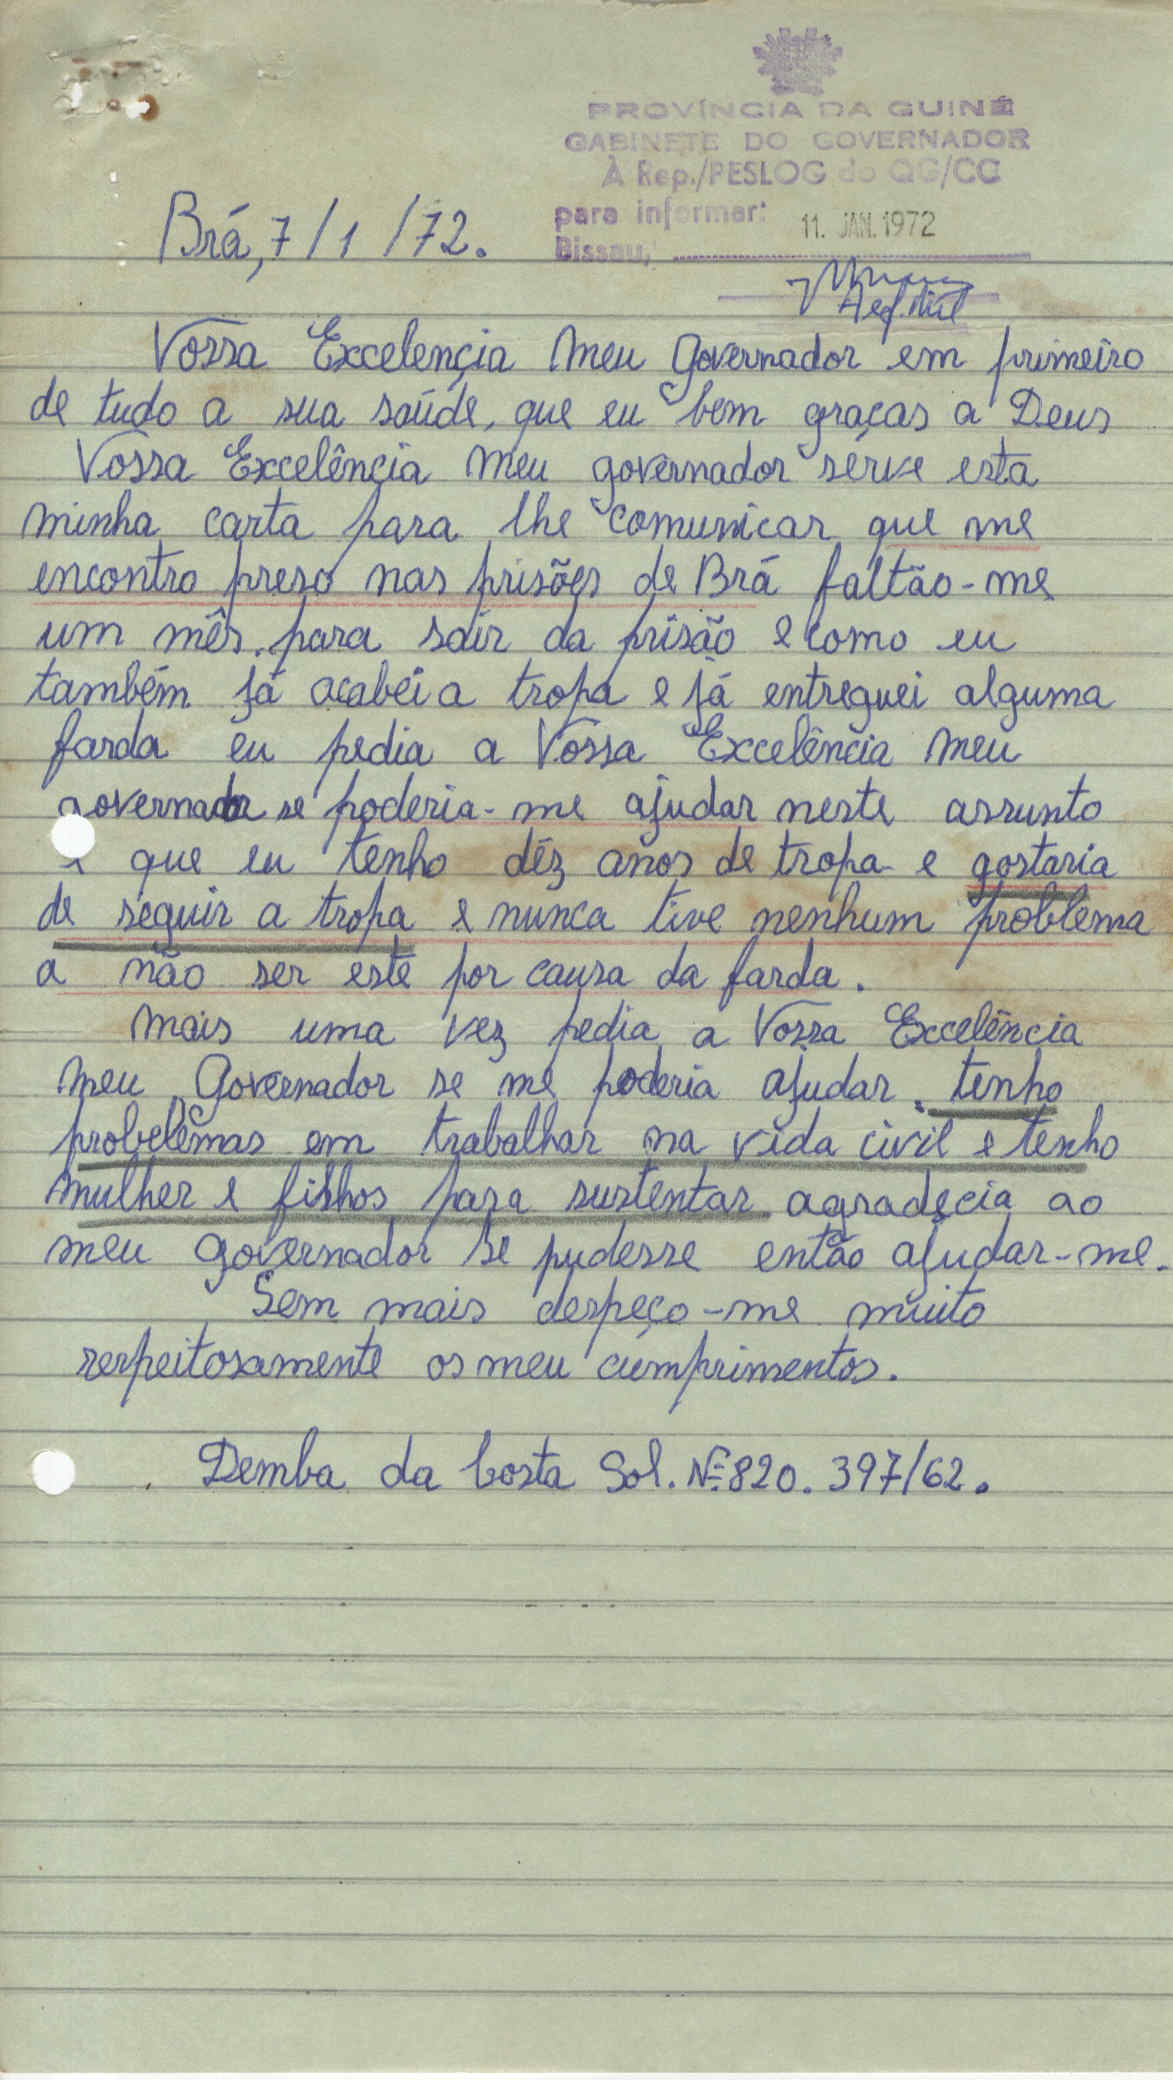 PROVÍNCIA DA GUINÉ
GABINETE DO GOVERNADOR
À Rep./PESLOG do QG/CC
para informar:
11. JAN. 1972
Bissau,
Brá, 7/1/72.
Vossa Excelençia Meu Governador em primeiro
de tudo a sua saúde, que eu bem graças a Deus
Vossa Excelênçia Meu governador serve esta
minha carta para lhe comunicar que me
encontro preso nas prisões de Brá faltão-me
um mês, para sair da prisão e como eu
também já acabei a tropa e já entreguei alguma
farda eu pedia a Vossa Excelência Meu
governador se poderia-me ajudar neste assunto
e que eu tenho déz anos de tropa e gostaria
de seguir a tropa e nunca tive nenhum problema
a não ser este por causa da farda.
Mais uma vez pedia a Vossa Excelência
Meu Governador se me poderia ajudar, tenho
probelemas em trabalhar na vida civil e tenho
mulher e filhos para sustentar agradecia ao
meu governador se pudesse então ajudar-me.
Sem mais despeço-me muito
respeitosamente os meu cumprimentos.
Demba da Costa Sol. Nº 820.397/62.